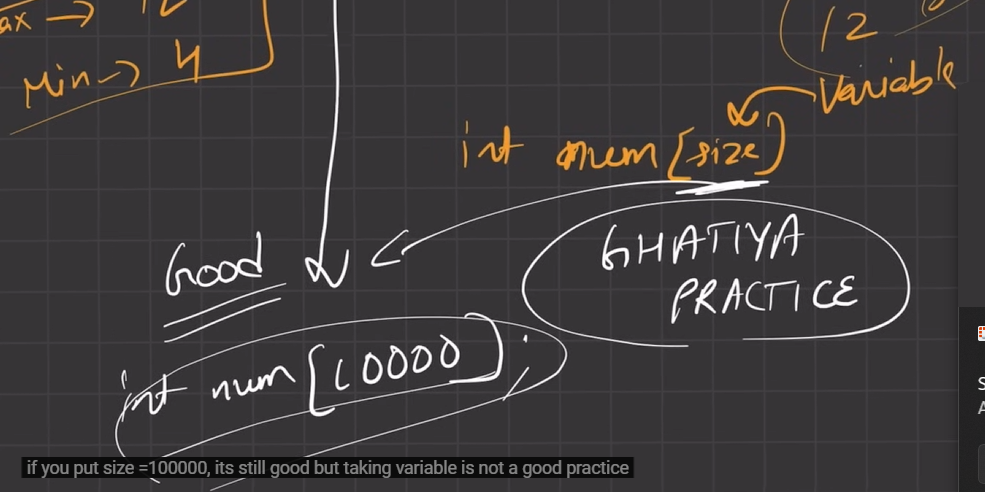 ax →
Min → 4
12
Variable
int num[size]
GHATIYA
PRACTICE
Good
int num[10000];
if you put size =100000, its still good but taking variable is not a good practice